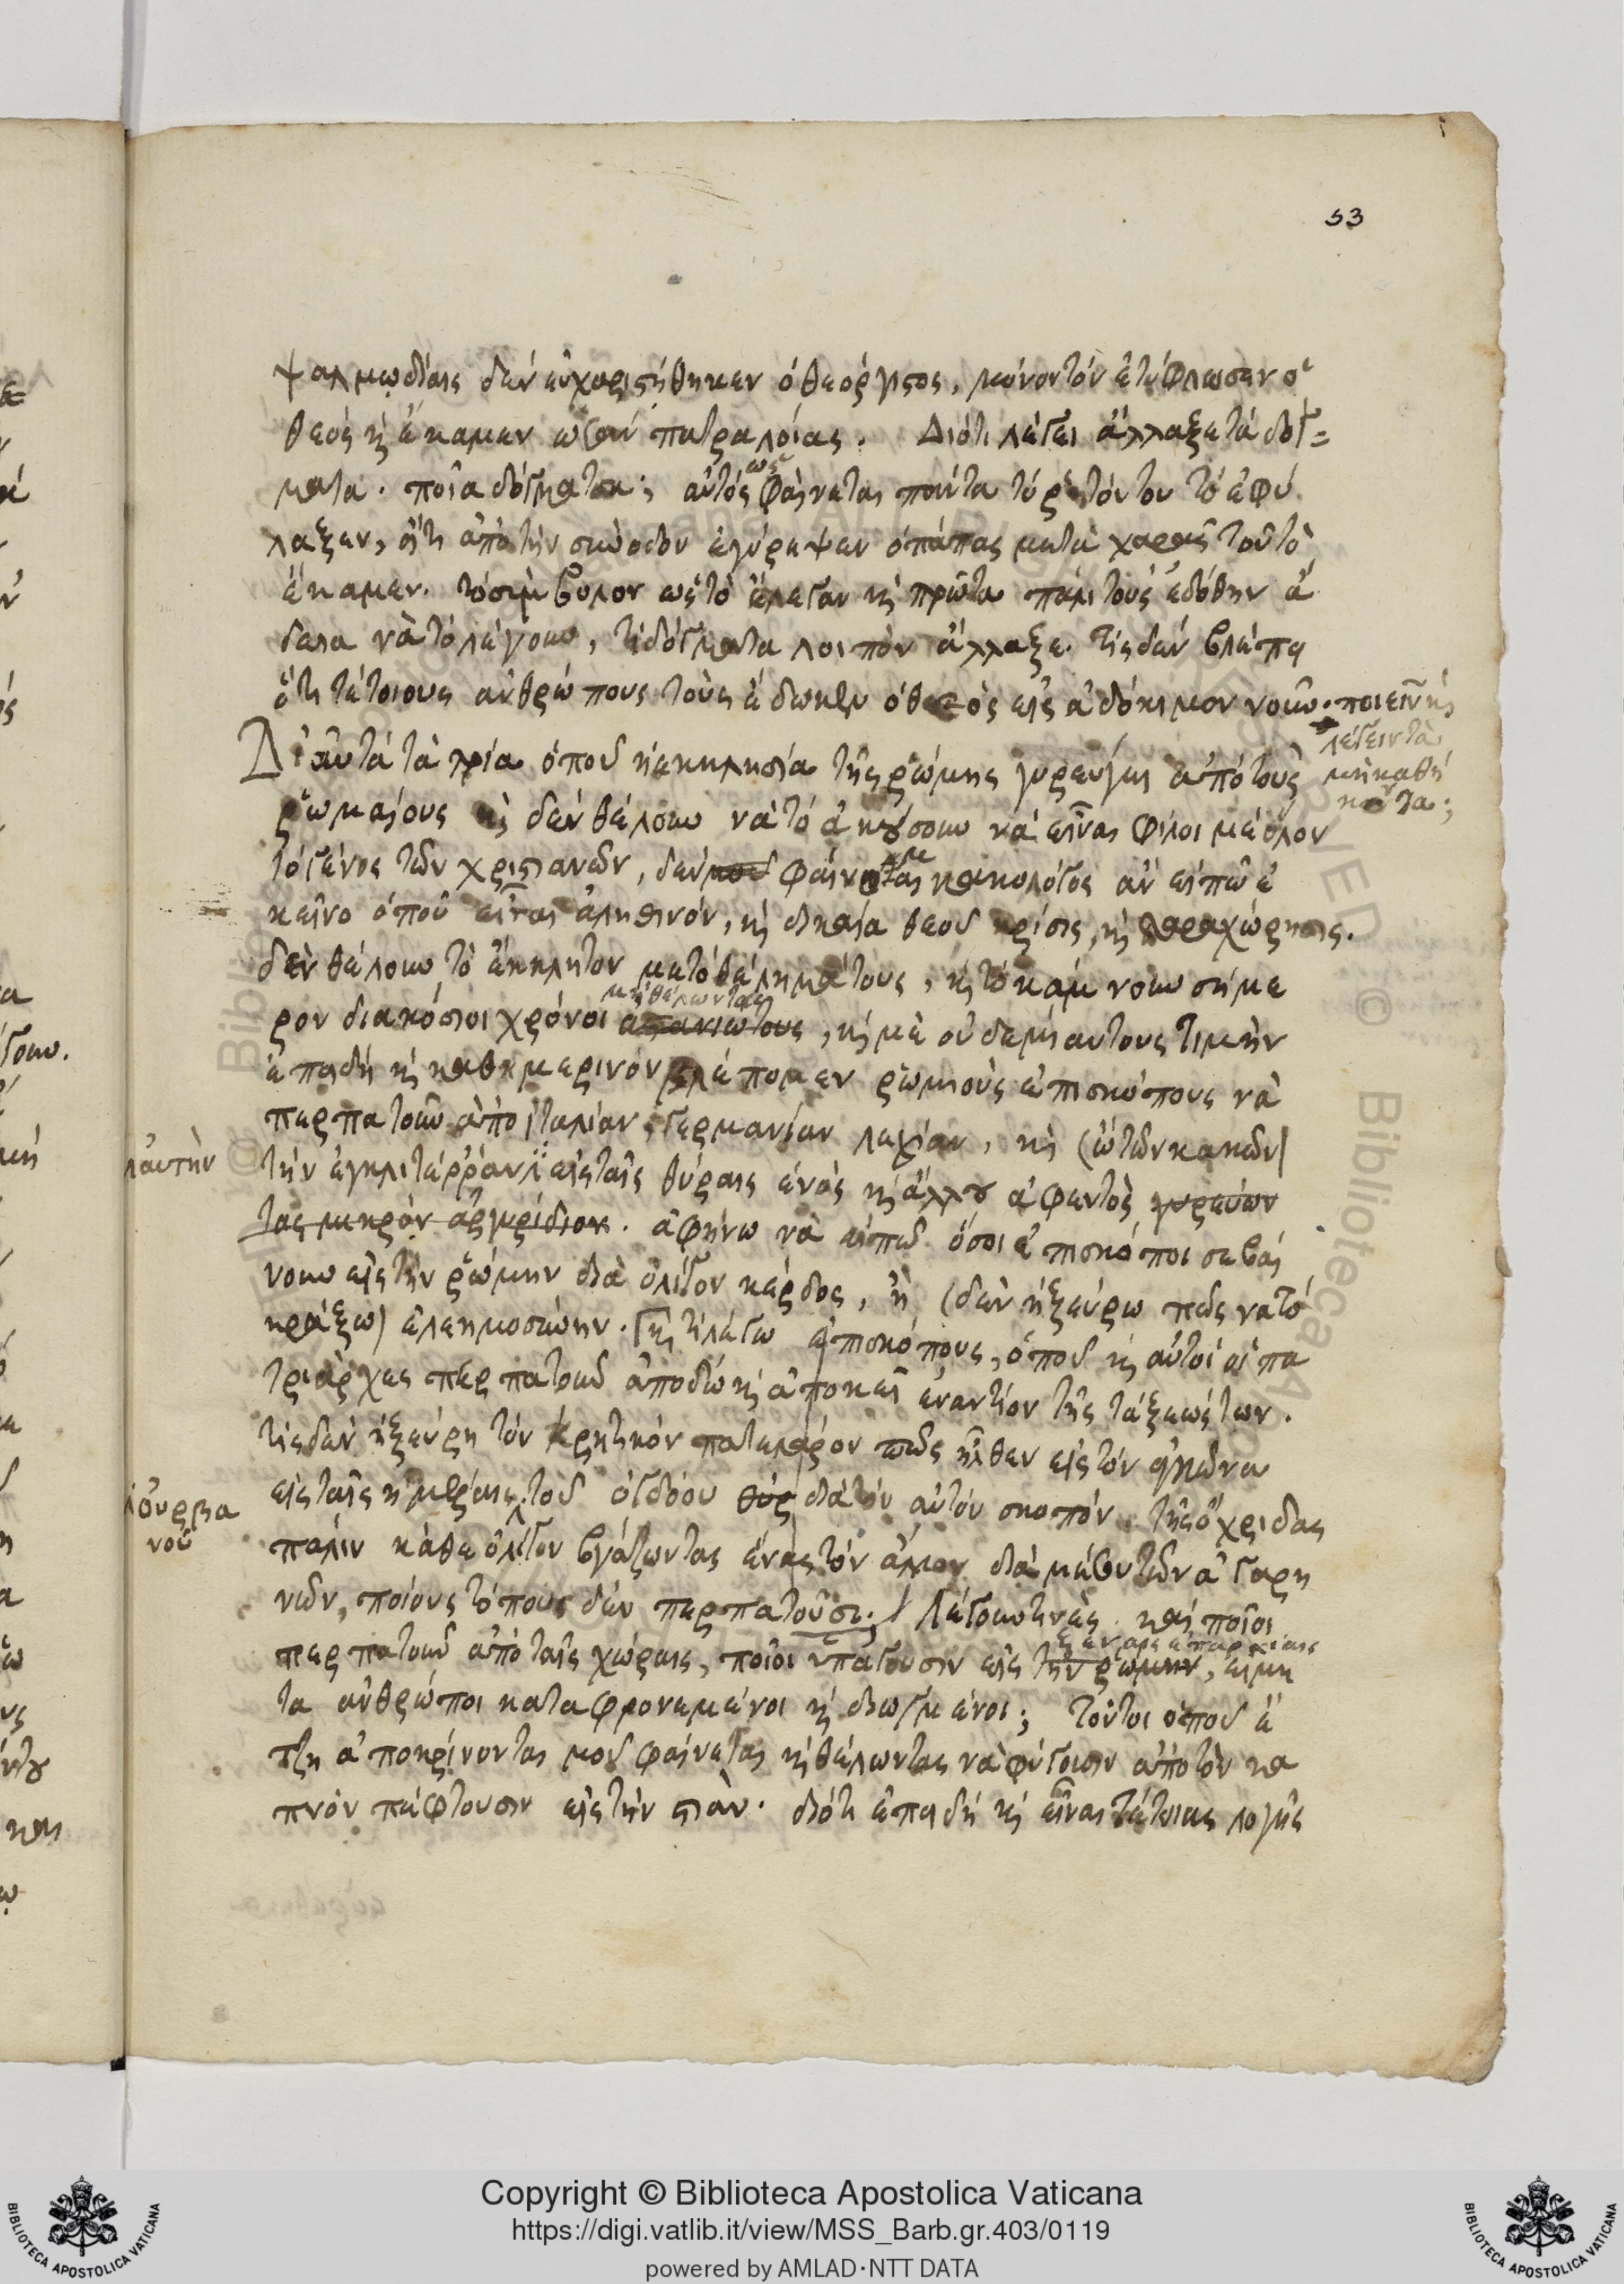 53
ψαλμωδίαις δὲν εὐχαριστήθηκεν ὁ θεόργιστος, μόνον τὸν ἐτύφλωσεν ὁ
θεὸς κὶ ἔκαμεν ὡσὰν πατραλοίας. Διότι λέγει ἄλλαξε τὰ δόγ=
ματα. ποῖα δόγματα; αὐτός ὡς φαίνεται πάντα τὸ ῥητόν του τὸ ἐφύ
λαξεν, ὅτι ἀπὸ τὴν σύνοδον ἐγύρεψεν ὁ πάπας μετὰ χαρᾶς τοῦ τὸ
ἔκαμεν. τὸ σύμβολον ὡς τὸ ἔλεγαν κὶ πρῶτα πάλι τοὺς ἐδόθην ἄ
δεια νὰ τὸ λέγουν, τί δόγματα λοιπὸν ἄλλαξε. τίς δὲν βλέπει
ὅτι τέτοιους ἀνθρώπους τοὺς ἔδωκεν ὁ θεὸς εἰς ἀδόκιμον νοῦν. ποιεῖν κὶ
λέγειν τὰ
μὴ καθή
κοντα;
Δι' αὐτὰ τὰ τρία ὁποῦ ἡ ἐκκλησία τῆς ῥώμης γυρεύγει ἀπὸ τοὺς
ῥωμαίους κὶ δὲν θέλουν νὰ τὸ ἀκούσουν νὰ εἶναι φίλοι μὲ ὅλον
τὸ γένος τῶν χριστιανῶν, δὲν μοῦ φαίνεται κακολόγος ἂν εἰπῶ ἐ
κεῖνο ὁποῦ εἶναι ἀληθινόν, κὶ δικαία θεοῦ κρίσις, κὶ παραχώρησις.
δὲν θέλουν τὸ ἔκκλητον μὲ τὸ θέλημά τους, κὶ τὸ κάμνουν σήμε
ρον διακόσιοι χρόνοι μὴ θέλωντας, κὶ μὲ οὐδεμιὰ τους τιμὴν
ἐπειδὴ κὶ καθημερινὸν βλέπομεν ῥωμιοὺς ἐπισκόπους νὰ
περπατοῦν ἀπὸ ἰταλίαν, γερμανίαν λεχίαν, κὶ (ὢ τῶν κακῶν)
λ αὐτὴν
τὴν ἐγκλιτέρραν εἰς ταῖς θύραις ἑνὸς κὶ ἄλλου ἀφεντὸς γυρεύων
τας μικρὸν ἀργυρίδιον. ἀφήνω νὰ εἰπῶ ὅσοι ἐπισκόποι σεβαί
νουν εἰς τὴν ῥώμην διὰ ὀλίγον κέρδος, ἢ (δὲν ἠξεύρω πῶς νὰ τὸ
κράξω) ἐλεημοσύνην. κὶ τί λέγω ἐπισκόπους, ὁποῦ κὶ αὐτοὶ οἱ πα
τριάρχες περπατοῦν ἀποδῶ κὶ ἀποκεῖ ἐναντίον τῆς τάξεώς των.
τίς δὲν ἠξεύρει τὸν κρητικὸν πατελάρον πῶς ἦλθεν εἰς τὸν ἀγκῶνα
λ οὐρβα
νοῦ
εἰς ταῖς ἡμέραις τοῦ ὀγδόου διὰ τὸν αὐτὸν σκοπόν. τῆς ὄχριδας
πάλιν κάθε ὀλίγον βγάζωντας ἕνας τὸν ἄλλον διὰ μέσου τῶν ἀγαρη
νῶν, ποίους τόπους δὲν περπατοῦσι; Λέγουν τινὲς καὶ ποῖοι
περπατοῦν ἀπὸ ταῖς χώραις, ποῖοι ὑπάγουσιν εἰς ξέναις ἐπαρχίαις τὴν ῥώμην, εἰμὴ
τα ἀνθρώποι καταφρονεμένοι κὶ διωγμένοι; τοῦτοι ὁποῦ ἔ
τζη ἀποκρίνονται μοῦ φαίνεται κὶ θέλωντας νὰ φύγουσιν ἀπὸ τὸν κα
πνὸν πέφτουσιν εἰς τὴν στιάν. διότι ἐπειδὴ κὶ εἶναι τέτοιας λογῆς
Copyright © Biblioteca Apostolica Vaticana
https://digi.vatlib.it/view/MSS_Barb.gr.403/0119
powered by AMLAD·NTT DATA
BIBLIOTECA APOSTOLICA VATICANA
BIBLIOTECA APOSTOLICA VATICANA